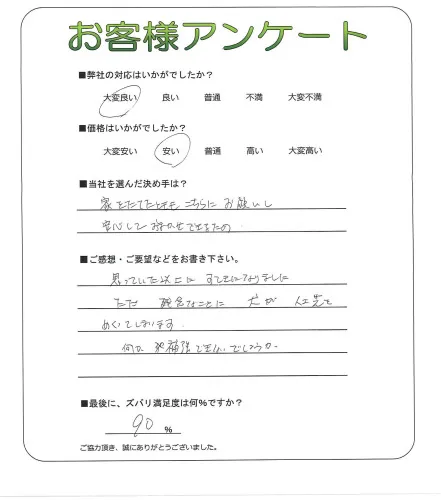 お客様アンケート
■弊社の対応はいかがでしたか?
大変良い 良い 普通 不満 大変不満
■価格はいかがでしたか?
大変安い 安い 普通 高い 大変高い
■当社を選んだ決め手は?
家をたてたときも こちらに お願いし
安心して おまかせできたの
■ご感想・ご要望などをお書き下さい。
思っていた以上に すてきになりました
ただ 残念なことに 犬が 人工芝を
めくってしまいます.
何か 補強できないでしょうか.
■最後に、ズバリ満足度は何%ですか?
90 %
ご協力頂き、誠にありがとうございました。